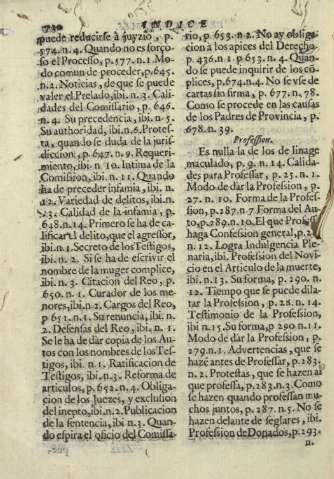 730 INDICE
puede reducirse à juyzio, p.
574. n. 4. Quando no es forço-
so el Processo, p. 577. n. 1. Mo-
do comun de proceder, p. 645.
n. 2. Noticias, de que se puede
valer el Prelado, ibi. n. 3. Cali-
dades del Comissario, p. 646.
n. 4. Su precedencia, ibi. n. 5.
Su authoridad, ibi. n. 6. Protes-
ta, quando se duda de la juris-
diccion, p. 647. n. 9. Requeri-
miento, ibi. n. 10. Intima de la
Comission, ibi. n. 11. Quando
ha de preceder infamia, ibi. n.
12. Variedad de delitos, ibi. n.
13. Calidad de la infamia, p.
648. n. 14. Primero se ha de ca-
lificar el delito, que el agressor,
ibi. n. 1. Secreto de los Testigos,
ibi. n. 2. Si se ha de escrivir el
nombre de la muger complice,
ibi. n. 3. Citacion del Reo, p.
650. n. 1. Curador de los me-
nores, ibi. n. 2. Cargos del Reo,
p 651. n. 1. Su renuncia, ibi. n.
2. Defensas del Reo, ibi. n. 1.
Se le ha de dàr copia de los Au-
tos con los nombres de los Tes-
tigos, ibi. n. 1. Ratificacion de
Testigos, ibi. n. 3. Reforma de
articulos, p. 652. n. 4. Obliga-
cion de los Juezes, y exclusion
del inepto, ibi. n. 2. Publicacion
de la sentencia, ibi n. 3. Quan-
do espira el oficio del Comissa-
rio, p. 653. n. 2. No ay obliga-
cion à los apices del Derecho,
p. 436. n 1. p 653. n. 4. Quan-
do se puede inquirir de los cō-
plices, p. 674. n. 4. No se vse de
cartas sin firma, p. 677. n. 78.
Como se procede en las causas
de los Padres de Provincia, p.
678. n. 39.
Profession.
Es nulla la de los de linage
maculado, p. 9. n. 14. Calida-
des para Professar, p. 25. n. 1.
Modo de dàr la Profession, p.
27. n. 10. Forma de la Profes-
sion, p. 287. n 7 Forma del Au-
to, p. 289. n. 10. El que Professa
haga Confession general, p. 2
n. 12. Logra Indulgencia Ple-
naria, ibi. Profession del Novi-
cio en el Articulo de la muerte,
ibi. n. 13. Su forma, p. 290. n.
12. Tiempo que se puede dila-
tar la Profession, p. 28. n. 14.
Testimonio de la Profession,
ibi n. 15. Su forma, p 290 n. 11.
Modo de dàr la Profession, p.
279. n. 1. Advertencias, que se
hazè antes de Professar, p. 283.
n. 2. Protestas, que se hazen al
que professa, p. 283. n. 3. Como
se hazen quando professan mu-
chos juntos, p. 287. n. 5. No se
hazen delante de seglares, ibi.
Profession de Donados, p. 293.
n.